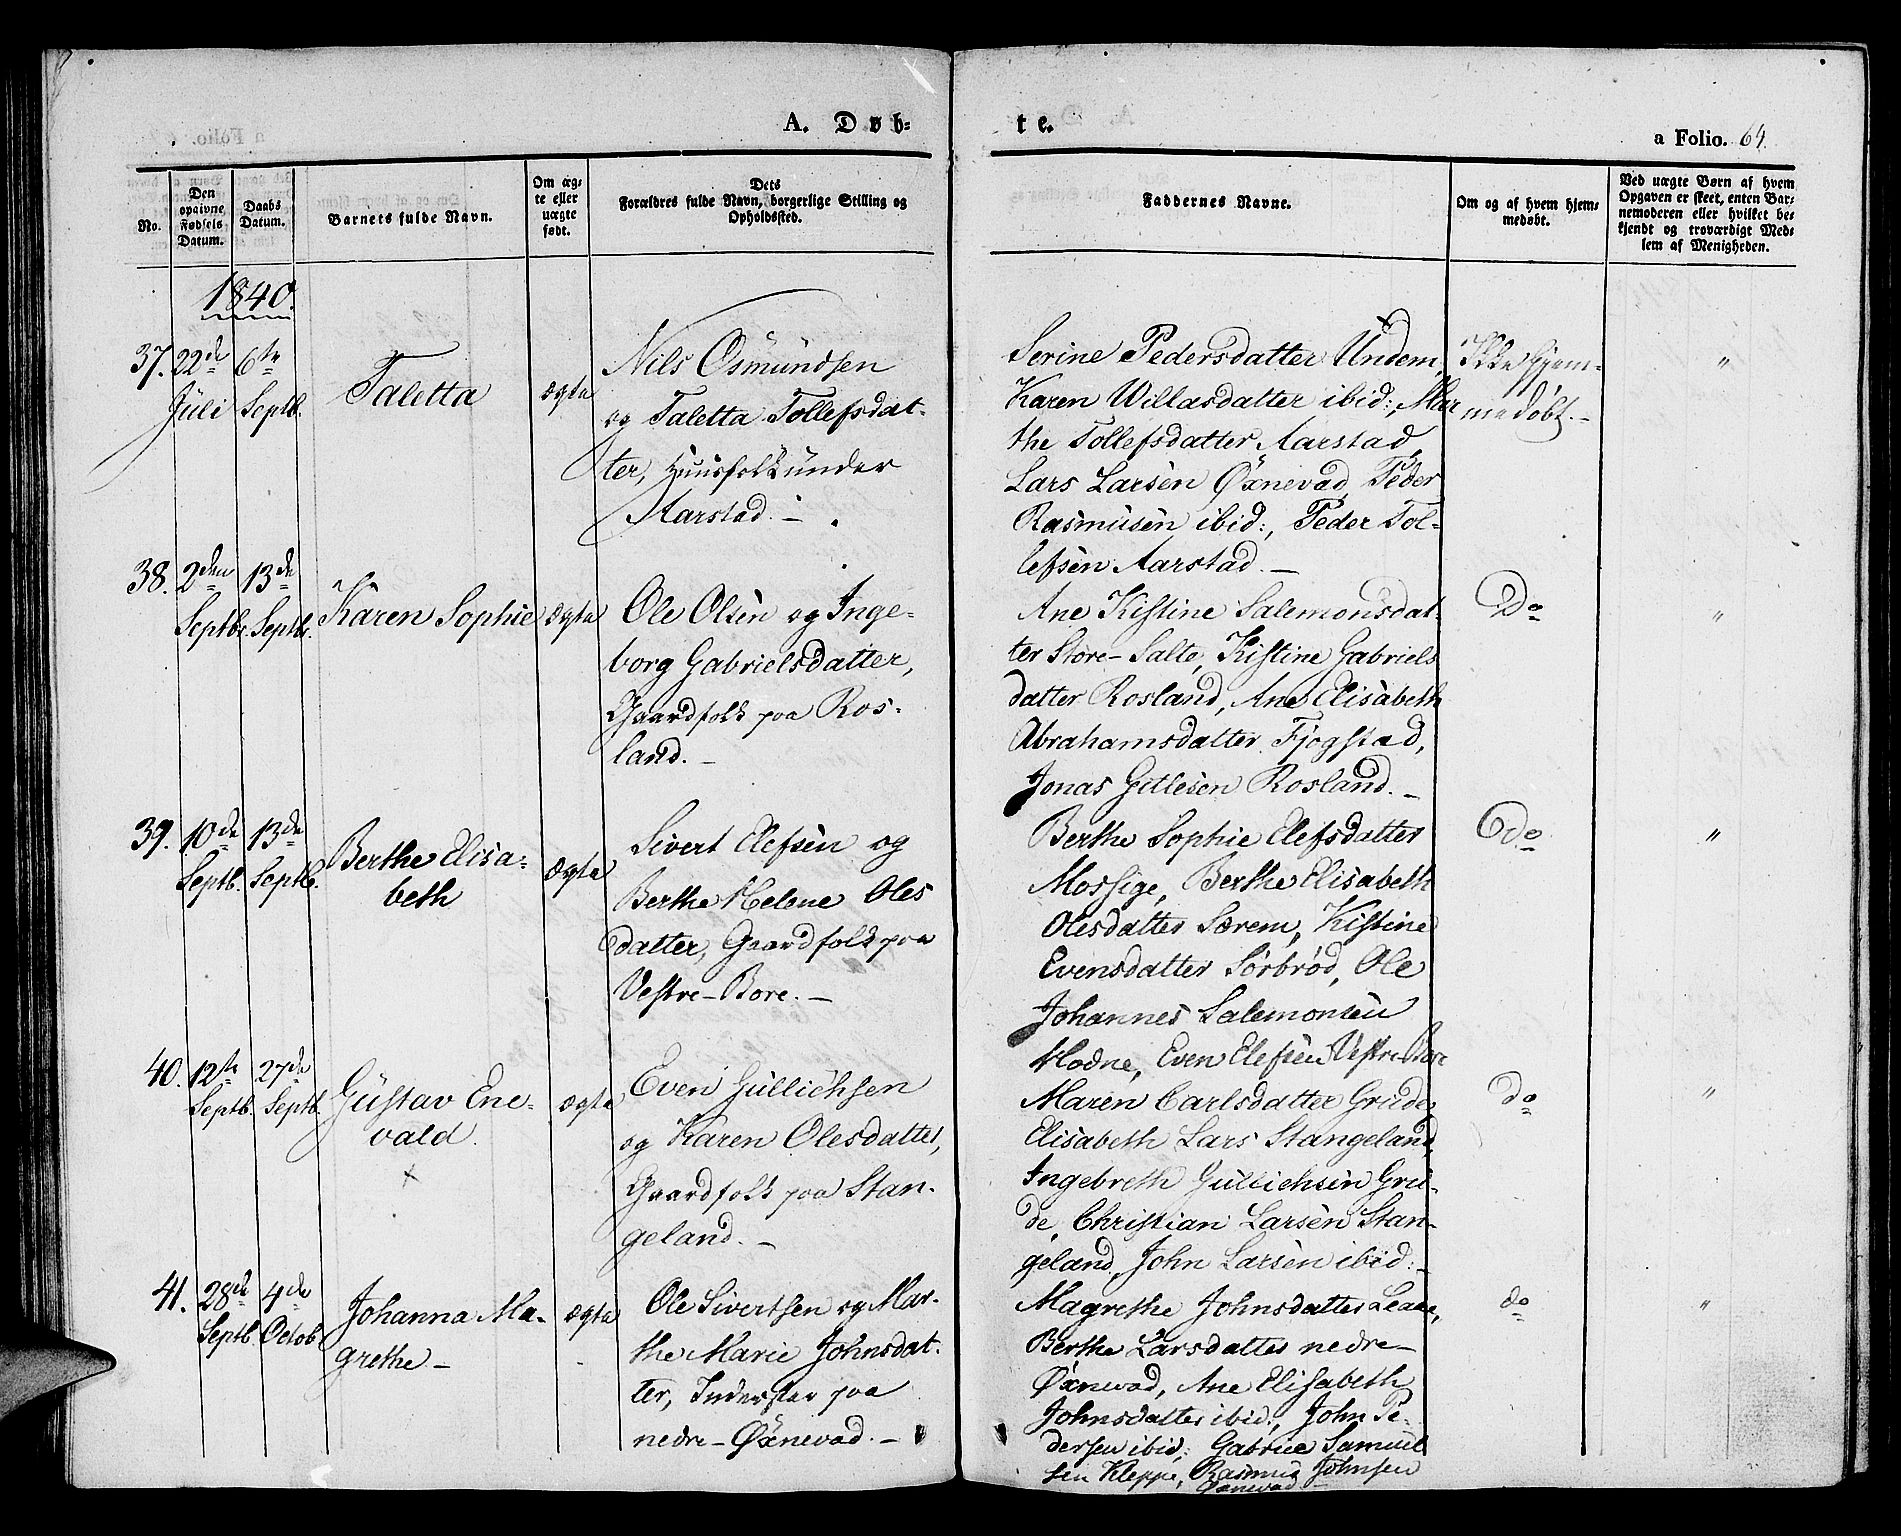 A. Døb=
te.
a Folio. 64.
No.
Den
opgivne
Fødsels
Datum.
Daabs
Datum.
Barnets fulde Navn.
Om æg=
te eller
uægte
født.
Dets
Forældres fulde Navn, borgerlige Stilling og
Opholdssted.
Faddernes Navne.
Om og af hvem hjem=
medøbt.
Ved uægte Børn af hvem
Opgaven er skeet, enten Bar=
nemoderen eller hvilket be=
kjendt og troværdigt Med=
lem af Menigheden.
1840.
37.
22de
Juli
6te
Septb.
Taletta
ægte
Nils Osmundsen
og Taletta Tollefsdat-
ter, Huusfolk under
Aarstad. -
Serine Pedersdatter Undem,
Karen Willasdatter ibid:, Mar
the Tollefsdatter Aarstad,
Lars Larsen Øxnevad, Peder
Rasmusen ibid:, Peder Tol-
lefsen Aarstad. -
Ikke hjem-
medøbt. -
"
38.
2den
Septbr.
13de
Septbr.
Karen Sophie
ægte
Ole Olsen og Inge-
borg Gabrielsdatter,
Gaardfolk paa Ros-
land. -
Ane Kistine Salemonsdat-
ter Store-Salte, Kistine Gabriels
datter Rosland, Ane Elisabeth
Abrahamsdatter Fjogstad,
Jonas Gitlesen Rosland. -
Do
"
39.
10de
Septb.
13de
Septb.
Berthe Elisa-
beth
ægte
Sivert Elefsen og
Berthe Helene Oles
datter, Gaardfolk paa
Vestre-Bore. -
Berthe Sophie Elefsdatter
Mossige, Berthe Elisabeth
Olesdatter Særem, Kistine
Evensdatter Sørbrød, Ole
Johannes Salemonsen
Hodne, Even Elefsen Vestre Bore
do
"
40.
12te
Septb.
27de
Septb.
Gustav Ene-
vald.
ægte
Even Gullichsen
og Karen Olesdatter,
Gaardfolk paa Stan-
geland. -
Maren Carlsdatter Grude,
Elisabeth Lars Stangeland,
Ingebreth Gullichsen Gru-
de, Christian Larsen Stan-
geland, John Larsen ibid: -
do
"
41.
28de
Septb.
4de
Octob.
Johanna Ma-
grethe -
ægte
Ole Sivertsen og Mar-
the Marie Johnsdat-
ter, Inderster paa
nedre-Øxnevad. -
Magrethe Johnsdatter Leane,
Berthe Larsdatter nedre-
Øxnevad, Ane Elisabeth
Johnsdatter ibid:, John Pe-
dersen ibid: Gabriel Samuel
sen Kleppe, Rasmus Johnsen
Øxnevad -
do
"